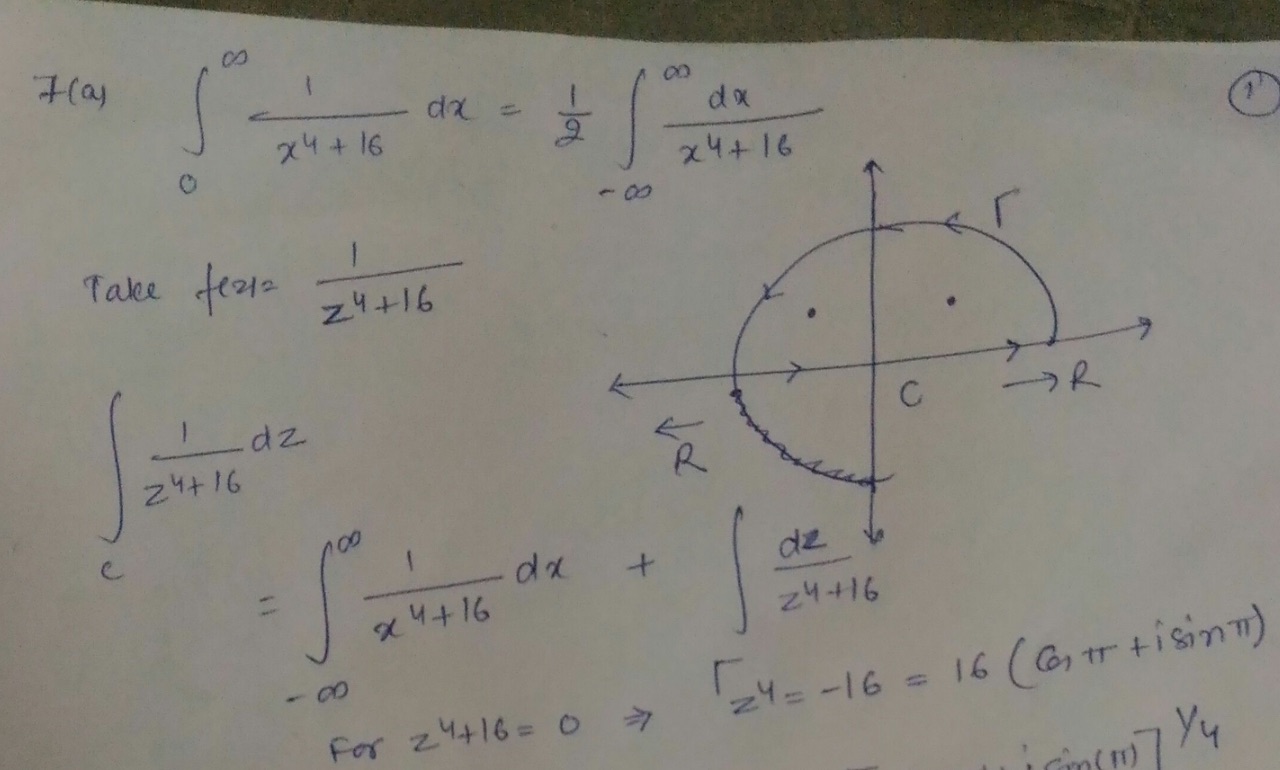 7(a) ∫₀^∞ 1/(x⁴+16) dx = 1/2 ∫₋∞^∞ dx/(x⁴+16)
1
Γ
Take f(z)= 1/(z⁴+16)
C
→ R
← R
∫_c 1/(z⁴+16) dz
= ∫₋∞^∞ 1/(x⁴+16) dx + ∫_Γ dz/(z⁴+16)
For z⁴+16=0 ⇒ z⁴=-16 = 16 (Cos π + i sin π)
i sin(π)] 1/4